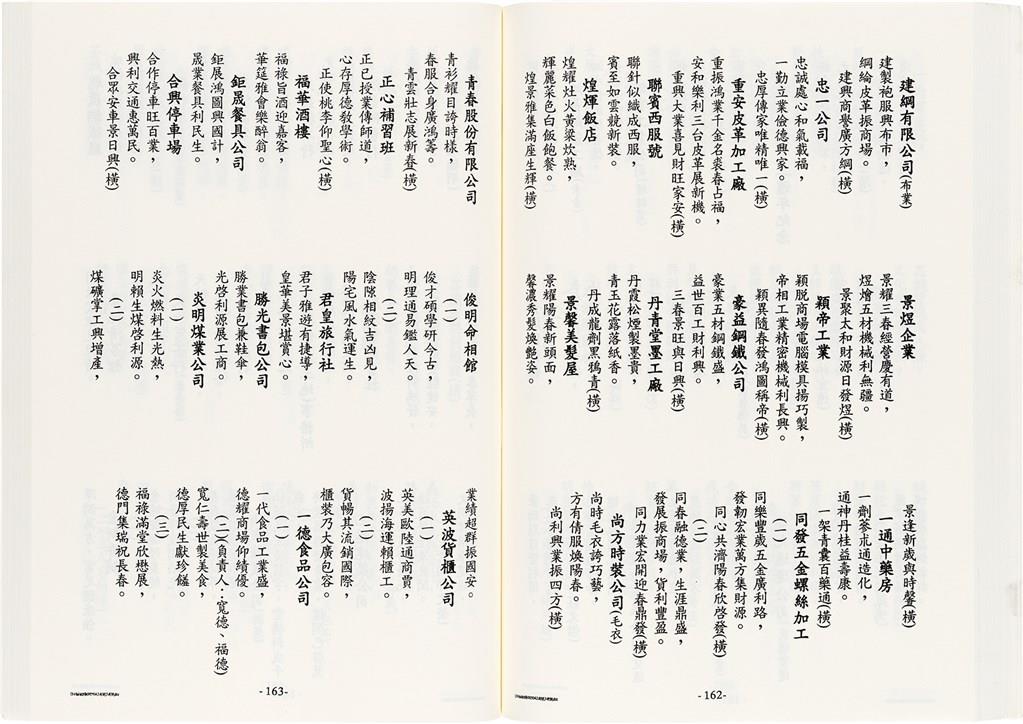 建綱有限公司(布業)
建製袍服興布市，
綱綸皮革振商場。
建興商譽廣方綱(橫)
忠一公司
忠誠處心和氣載福，
一勤立業儉德興家。
忠厚傳家唯精唯一(橫)
重安皮革加工廠
重振鴻業千金名裘春占福，
安和樂利三台皮革展新機。
重興大業喜見財旺家安(橫)
聯賓西服號
聯針似織成西服，
賓至如雲競新裝。
煌煇飯店
煌耀灶火黃粱炊熟，
輝麗菜色白飯飽餐。
煌景雅集滿座生輝(橫)
景煜企業
景耀三春經營慶有道，
煜燴五材機械利無疆。
景聚太和財源日發煜(橫)
穎帝工業
穎脫商場電腦模具揚巧製，
帝相工業精密機械利長興。
穎異隨春發鴻圖稱帝(橫)
豪益鋼鐵公司
豪業五材鋼鐵盛，
益世百工財利興。
三春景旺與日興(橫)
丹青堂墨工廠
丹霞松煙製墨貴，
青玉花露落紙香。
丹成龍劑黑鴉青(橫)
景馨美髮屋
景耀陽春新頭面，
馨濃秀髮煥艷姿。
景逢新歲與時馨(橫)
一通中藥房
一劑荃朮通造化，
通神丹桂益壽康。
一架青囊百藥通(橫)
同發五金螺絲加工
(一)
同樂豐歲五金廣利路，
發韌宏業萬方集財源。
同心共濟陽春欣啓發(橫)
(二)
同春融德業，生涯鼎盛，
發展振商場，貨利豐盈。
同力業宏開迎春鼎發(橫)
尚方時裝公司(毛衣)
尚時毛衣誇巧藝，
方有倩服煥陽春。
尚利興業振四方(橫)
-162-
青春股份有限公司
青衫耀目誇時樣，
春服合身廣鴻籌。
青雲壯志展新春(橫)
正心補習班
正己授業傳師道，
心存厚德教學術。
正使桃李仰聖心(橫)
福華酒樓
福祿旨酒迎嘉客，
華筵雅會樂醉翁。
鉅晟餐具公司
鉅展鴻圖興國計，
晟業餐具利民生。
合興停車場
合作停車旺百業，
興利交通惠萬民。
合眾安車景日興(橫)
俊明命相館
(一)
俊才碩學研今古，
明理通易鑑人天。
(二)
陰隙相紋吉凶見，
陽宅風水氣運生。
君皇旅行社
君子雅遊有捷導，
皇華美景堪賞心。
勝光書包公司
勝業書包兼鞋傘，
光啓利源展工商。
炎明煤業公司
(一)
炎火燃料生光熱，
明賴生煤啓利源。
(二)
煤礦掌工興增產，
業績超群振國安。
英波貨櫃公司
(一)
英美歐陸通商賈，
波揚海運賴櫃工。
(二)
貨暢其流銷國際，
櫃裝乃大廣包容。
一德食品公司
(一)
一代食品工業盛，
德耀商場仰績優。
(二)(負責人：寬德、福德)
寬仁壽世製美食，
德厚民生獻珍饈。
(三)
福祿滿堂欣懋展，
德門集瑞祝長春。
-163-